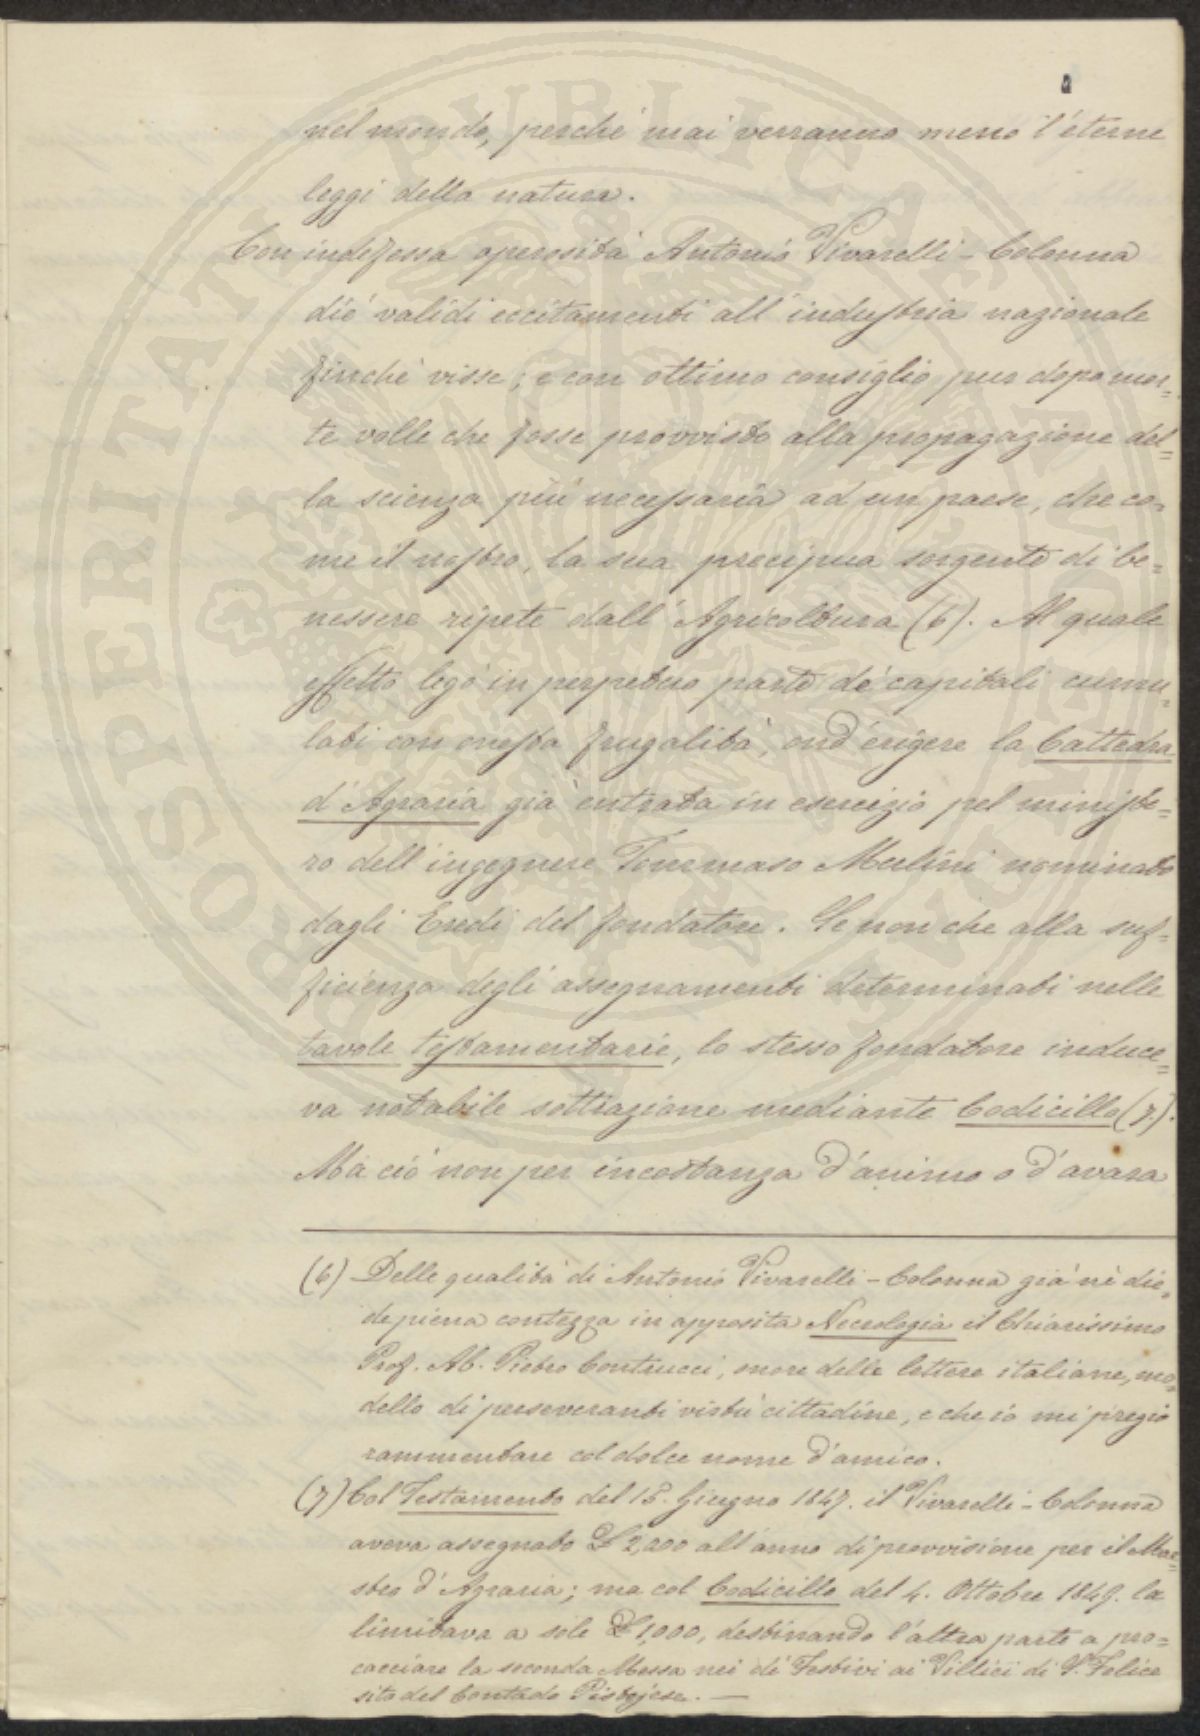 nel mondo, perchè mai verranno meno l'éterne
leggi della natura.
Con indefessa operosità Antonio Vivarelli-Colonna
diè validi eccitamenti all'industria nazionale
finchè visse; e con ottimo consiglio pur dopo mor=
te volle che fosse provvisto alla propagazione del=
la scienza più necessaria ad un paese, che co=
me il nostro, la sua precipua sorgente di be=
nessere ripete dall'Agricoltura (6). Al quale
effetto legò in perpetuo parte de' capitali cumu=
lati con onesta frugalità, ond'erigere la Cattedra
d'Agraria già entrata in esercizio pel ministe=
ro dell'ingegnere Tommaso Mulini nominato
dagli Eredi del fondatore. Se non che alla suf=
ficienza degli assegnamenti determinati nelle
tavole testamentarie, lo stesso fondatore induce=
va notabile sottrazione mediante Codicillo (7).
Ma ciò non per incostanza d'animo o d'avara
(6) Delle qualità di Antonio Vivarelli-Colonna già nè die=
de piena contezza in apposita Necrologia il Chiarissimo
Prof. Ab. Pietro Contrucci, onore delle lettere italiane, mo=
dello di perseveranti virtù cittadine, e che io mi pregio
rammentare col dolce nome d'amico.
(7) Col Testamento del 15. Giugno 1847. il Vivarelli-Colonna
aveva assegnato £ 2,000 all'anno di provvisione per il Mae=
stro d'Agraria; ma col Codicillo del 4. Ottobre 1849. la
limitava a sole £ 1,000, destinando l'altra parte a pro=
cacciare la seconda Messa nei dì Festivi ai Villici di S. Felice
sito del Contado Pistojese. —
PROSPERITATI PUBLICAE AUGENDAE